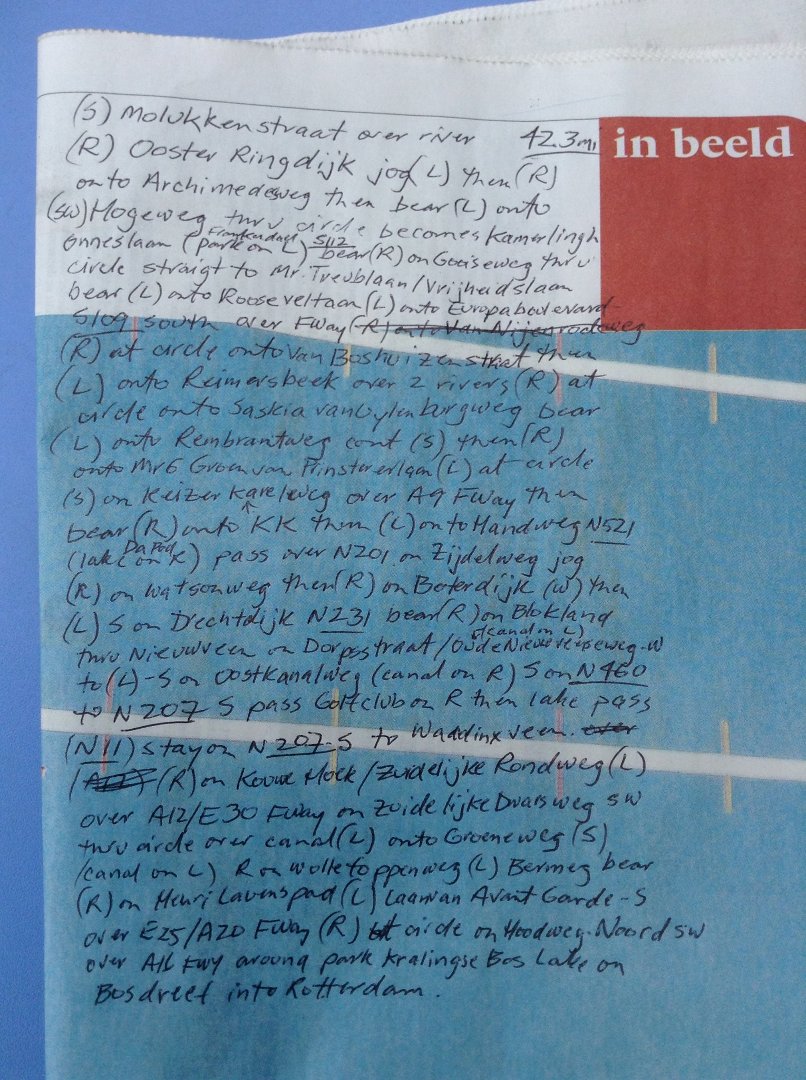 (S) Molukkenstraat over river 42.3mi
in beeld
(R) Ooster Ringdijk jog (L) then (R)
onto Archimedesweg then bear (L) onto
(SW) Hogeweg thru circle becomes Kamerlingh
Onneslaan (Frankendael park on L) S112 bear (R) on Gooiseweg thru
circle straigt to Mr. Treublaan/Vrijheidslaan
bear (L) onto Rooseveltaan (L) onto Europaboulevard
S109 south over Fway (R) onto Van Nijenrodeweg
(R) at circle onto Van Boshuizenstraat then
(L) onto Reimersbeek over 2 rivers (R) at
circle onto Saskia vanUylenburgweg bear
(L) onto Rembrantweg cont (S) then (R)
onto Mr G Groen van Prinstererlaan (L) at circle
(S) on Keizer Karelweg over A9 Fway then
bear (R) onto KK then (L) onto Handweg N521
(lake Da Poel on R) pass over N201 on Zijdelweg jog
(R) on Watsonweg then (R) on Boterdijk (W) then
(L) S on Drechtdijk N231 bear (R) on Blokland
thru Nieuwveen on Dorpsstraat/Oude Nieuwveenseweg-W (canal on L)
to (L)-S on Oostkanalweg (canal on R) S on N460
to N207 S pass Golfclub on R then lake pass
(N11) stay on N207-S to Waddinxveen. over
(R) on Kouwe Hoek/Zuidelijke Rondweg (L)
over A12/E30 Fway on Zuidelijke Dwarsweg SW
thru circle over canal (L) onto Groeneweg (S)
(canal on L) R on Wollefoppenweg (L) Bermeg bear
(R) on Henri Lavenspad (L) Laanvan Avant Garde-S
over E25/A20 Fway (R) at circle on Hoodweg-Noord SW
over A16 Fwy around park Kralingse Bos Lake on
Bosdreef into Rotterdam.